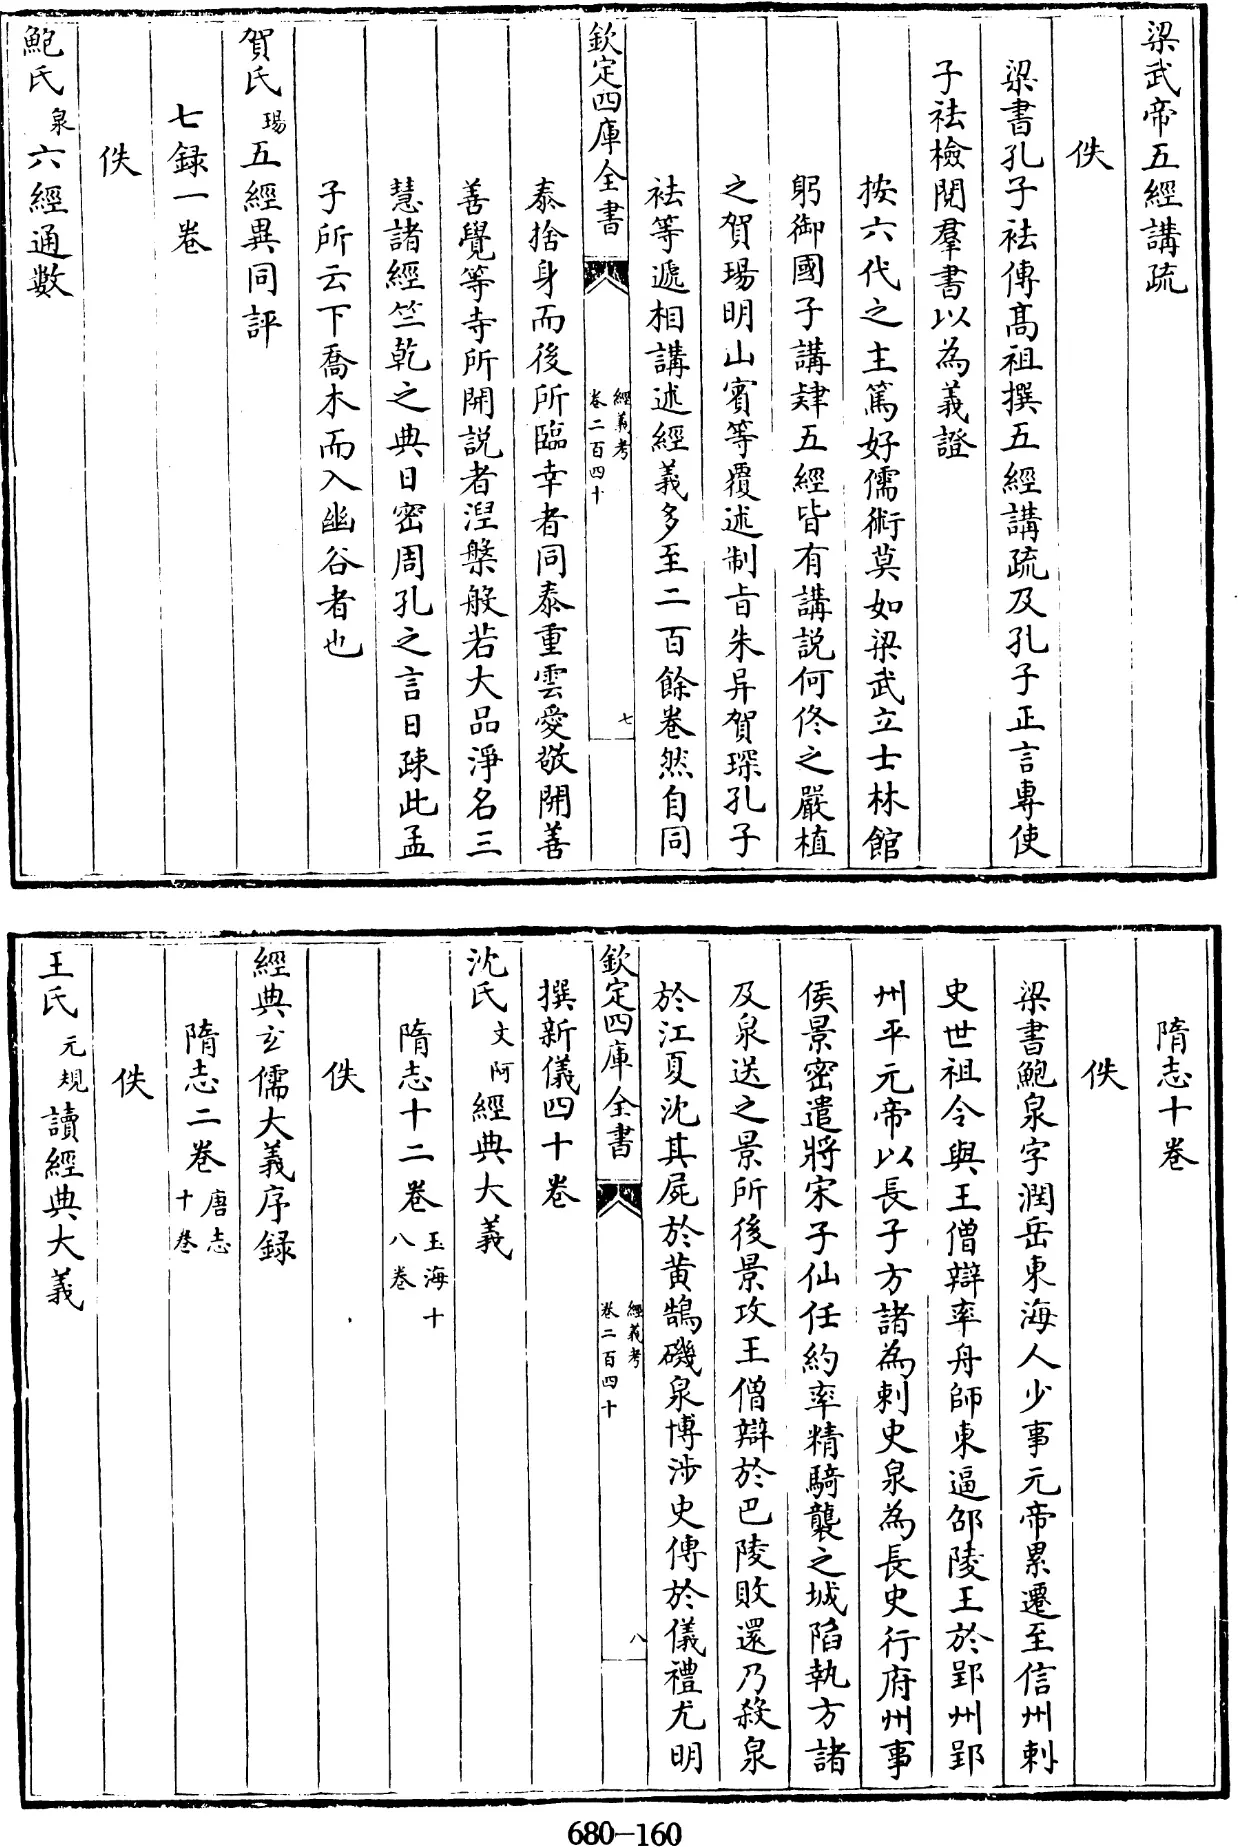 梁武帝五經講疏
佚
梁書孔子袪傳髙祖撰五經講疏及孔子正言專使
子袪檢閱羣書以為義證
按六代之主篤好儒術莫如梁武立士林館
躬御國子講肄五經皆有講説何佟之嚴植
之賀瑒明山賓等覆述制㫖朱异賀琛孔子
袪等遞相講述經義多至二百餘卷然自同
欽定四庫全書
經義考
卷二百四十
七
泰捨身而後所臨幸者同泰重雲愛敬開善
善覺等寺所開説者湼槃般若大品淨名三
慧諸經竺乾之典日密周孔之言日疎此孟
子所云下喬木而入幽谷者也
賀氏瑒五經異同評
七録一卷
佚
鮑氏泉六經通數
隋志十卷
佚
梁書鮑泉字潤岳東海人少事元帝累遷至信州刺
史世祖令與王僧辯率舟師東逼邵陵王於郢州郢
州平元帝以長子方諸為刺史泉為長史行府州事
侯景密遣將宋子仙任約率精騎襲之城陷執方諸
及泉送之景所後景攻王僧辯於巴陵敗還乃殺泉
於江夏沈其屍於黄鵠磯泉博涉史傳於儀禮尤明
欽定四庫全書
經義考
卷二百四十
八
撰新儀四十卷
沈氏文阿經典大義
隋志十二卷玉海十八卷
佚
經典玄儒大義序録
隋志二卷唐志十卷
佚
王氏元規讀經典大義
680-160